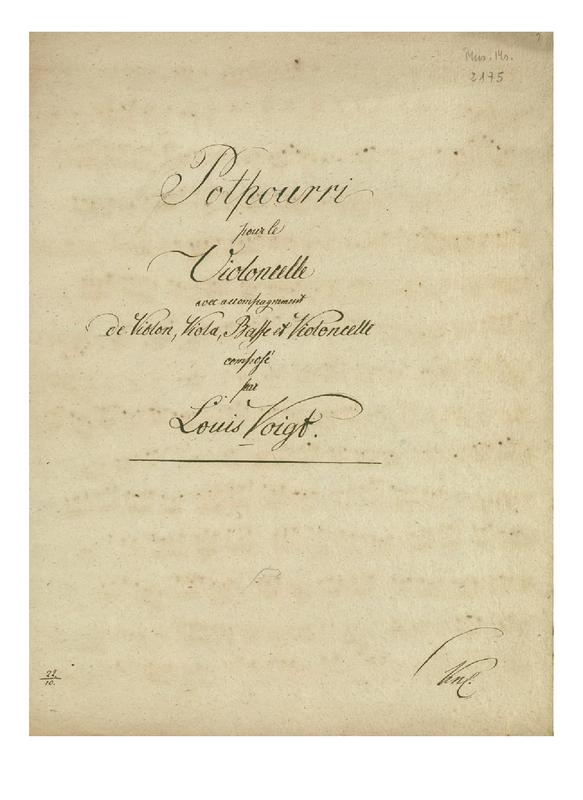 Mus. Ms.
2175
Potpourri
pour le
Violoncelle
avec accompagnement
de Violon, Viola, Basse et Violoncelle
composé
par
Louis Voigt.
22.
10.